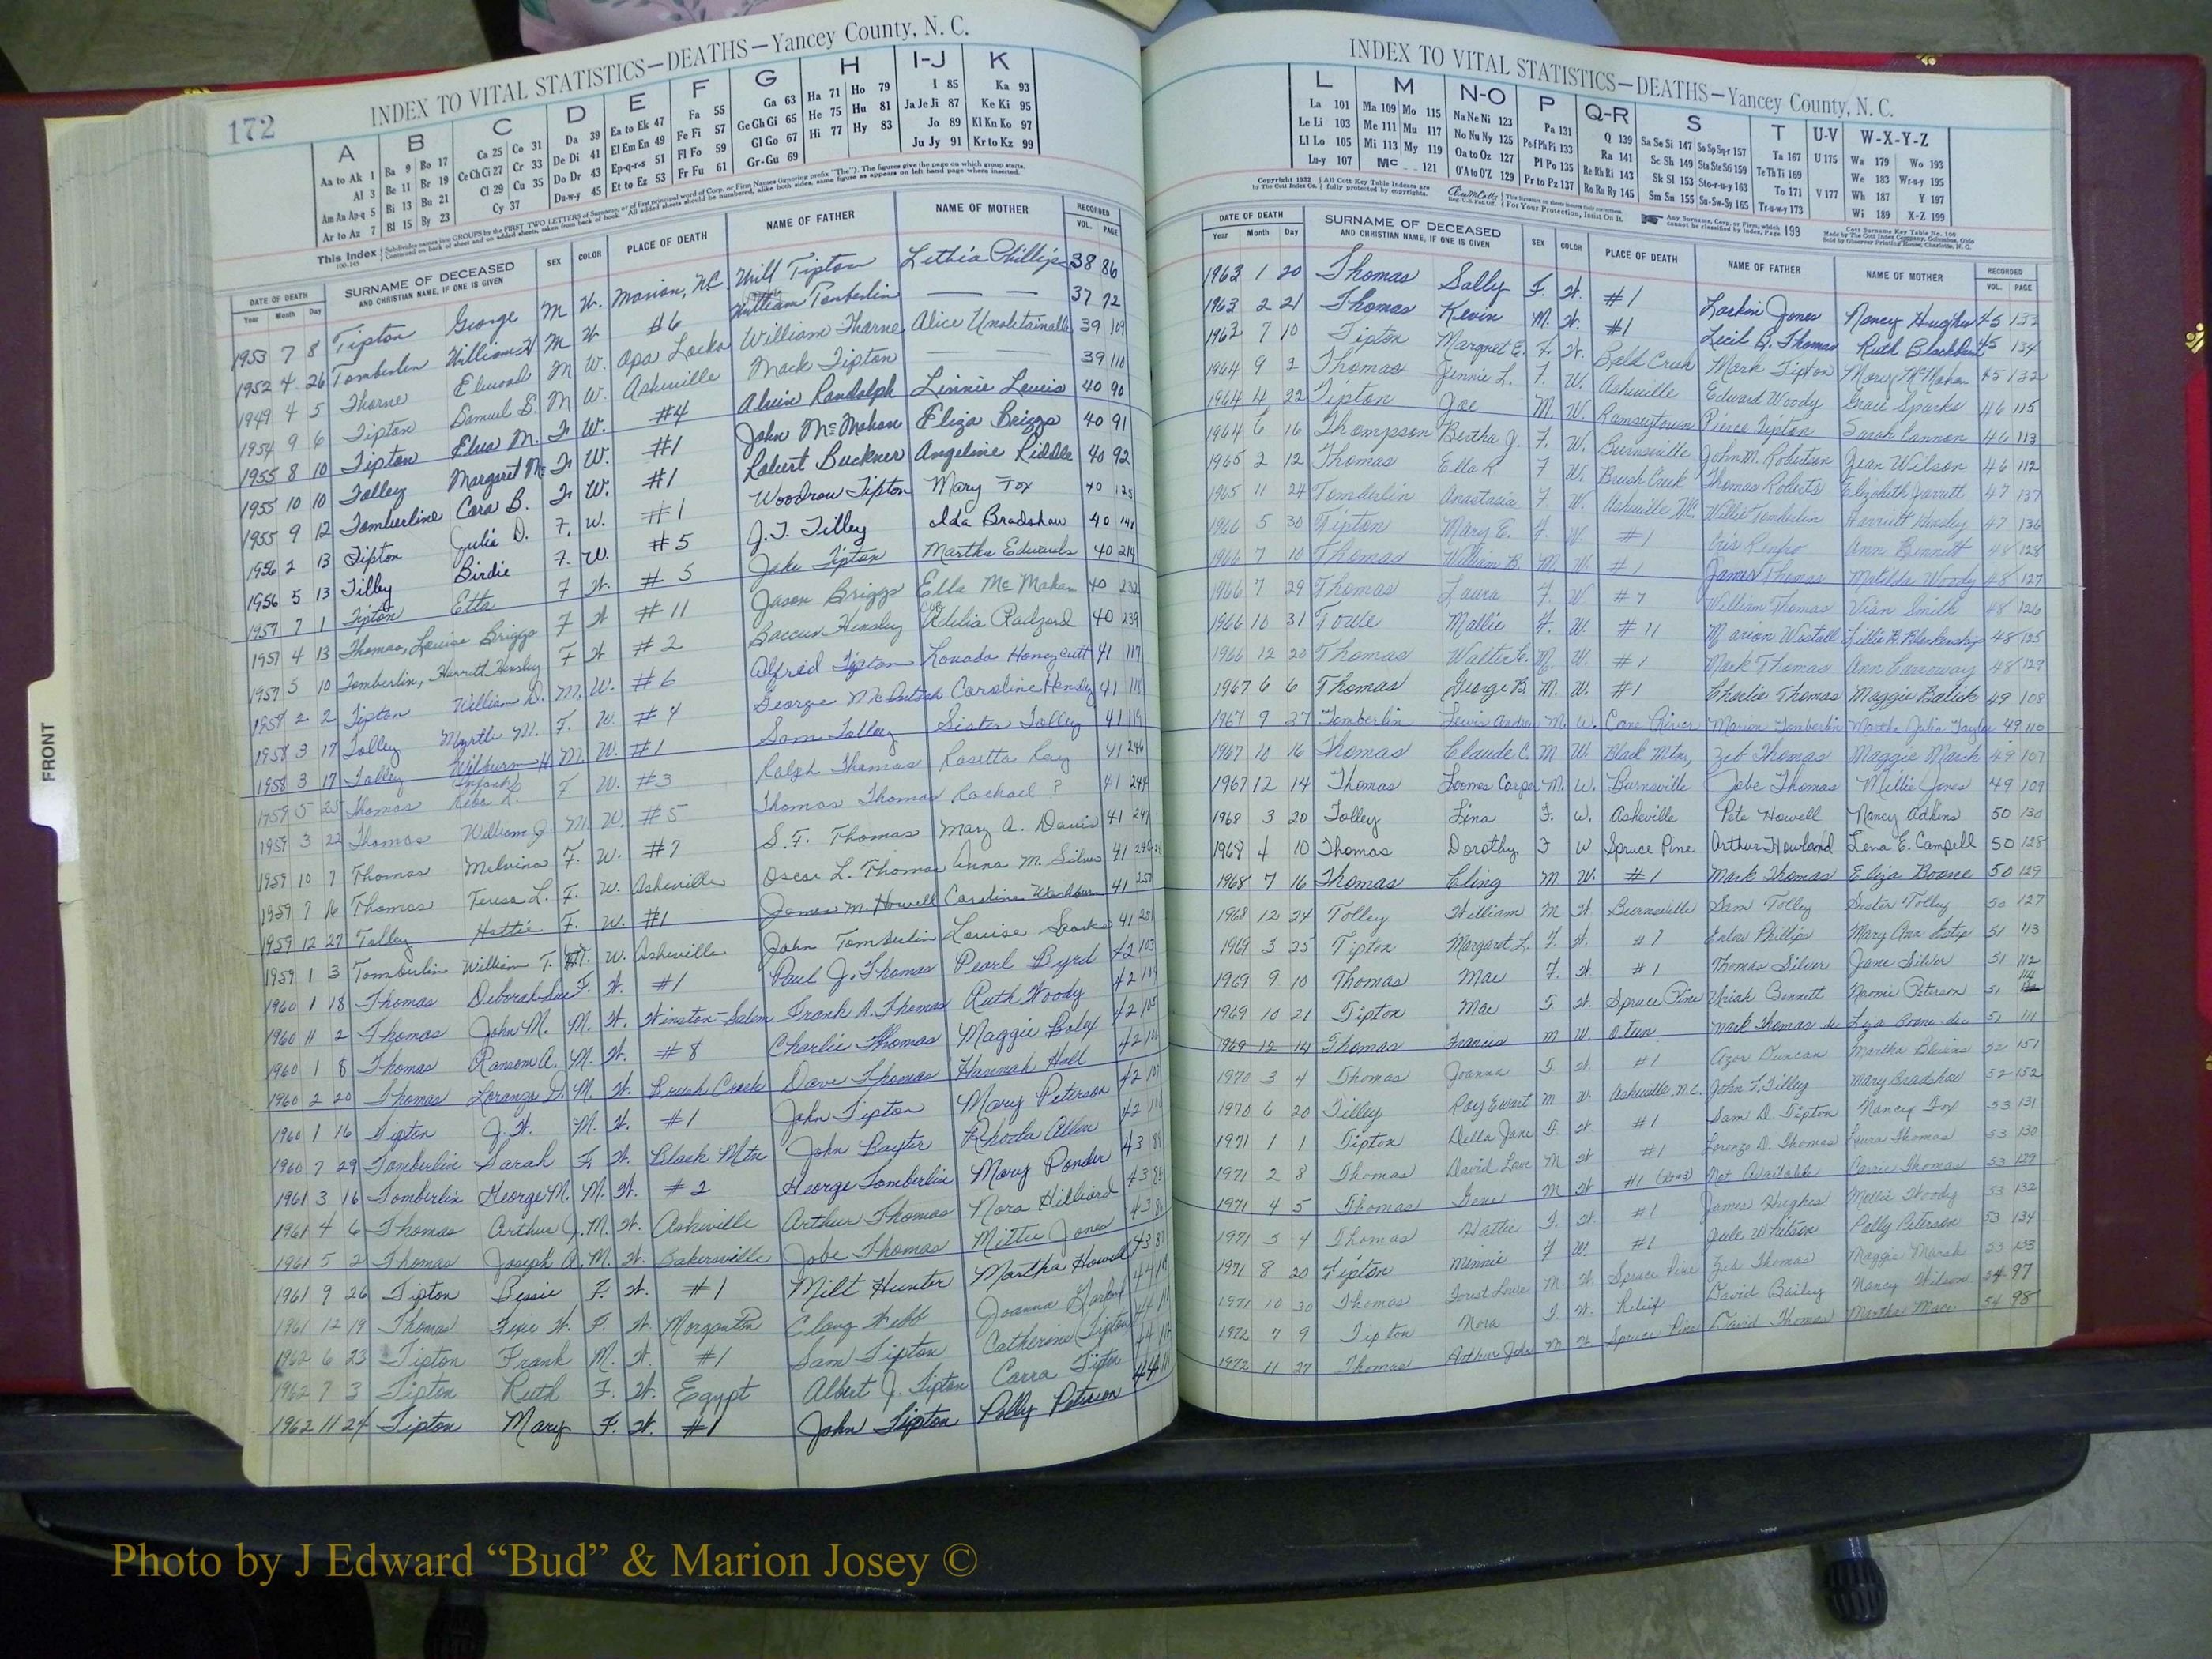 172
INDEX TO VITAL STATISTICS—DEATHS—Yancey County, N. C.
A B C D E F G H I-J K
Aa to Ak 1 Ba 9 Bo 17 Ca 25 Co 31 Da 39 Ea to Ek 47 Fa 55 Ga 63 Ha 71 Ho 79 I 85 Ka 93
Al 3 Be 11 Br 19 Ce Ch Ci 27 Cr 33 De Di 41 El Em En 49 Fe Fi 57 Ge Gh Gi 65 He 75 Hu 81 Ja Je Ji 87 Ke Ki 95
Am An Ap-q 5 Bi 13 Bu 21 Cl 29 Cu 35 Do Dr 43 Ep-q-r-s 51 Fl Fo 59 Gl Go 67 Hi 77 Hy 83 Jo 89 Kl Kn Ko 97
Ar to Az 7 Bl 15 By 23 Cy 37 Du-w-y 45 Et to Ez 53 Fr Fu 61 Gr-Gu 69 Ju Jy 91 Kr to Kz 99
This Index
DATE OF DEATH SURNAME OF DECEASED AND CHRISTIAN NAME, IF ONE IS GIVEN SEX COLOR PLACE OF DEATH NAME OF FATHER NAME OF MOTHER RECORDED
Year Month Day VOL. PAGE
1953 7 8 Tipton George M W. Marion, NC Will Tipton Lethia Phillips 38 86
1952 4 26 Tomberlin William H M W #6 William Tomberlin — — 37 72
1949 4 5 Thorne Elwood M W. Opa Locka William Thorne Alice 39 109
1954 9 6 Tipton Samuel S. M W. Asheville Mack Tipton — — 39 110
1955 8 10 Tipton Elva M. F W. #4 Alvin Randolph Linnie Lewis 40 90
1955 10 10 Tolley Margaret M. F W. #1 John McMahan Eliza Briggs 40 91
1955 9 12 Tomberline Cora B. F W. #1 Robert Buckner Angeline Riddle 40 92
1956 2 13 Tipton Julia D. F. W. #1 Woodrow Tipton Mary Fox 40 125
1956 5 13 Tilley Birdie F. W. #5 J.T. Tilley Ida Bradshaw 40 141
1957 7 1 Tipton Etta F W. #5 Jake Tipton Martha Edwards 40 214
1957 4 13 Thomas, Louise Briggs F W #11 Jason Briggs Ella McMahan 40 232
1957 5 10 Tomberlin, Harrett Hensley F W #2 Baccus Hensley Adelia Radford 40 239
1958 2 2 Tipton William D. M. W. #6 Alfred Tipton Louada Honeycutt 41 117
1958 3 17 Tolley Myrtle M. F. W. #4 George Caroline Hensley 41 118
1958 3 17 Tolley Wilburn H M. W. #1 Sam Tolley Sister Tolley 41 119
1959 5 25 Thomas Infant Reba K. F W. #3 Ralph Thomas Rosetta Ray 41 246
1959 3 22 Thomas William J. M. W. #5 Thomas Thomas Rachael ? 41 244
1959 10 7 Thomas Melvina F. W. #7 S. F. Thomas Mary A. Davis 41 247
1959 7 16 Thomas Teresa L. F. W. Asheville Oscar L. Thomas Anna M. Silver 41
1959 12 27 Tolley Hattie F. W. #1 James M. Howell Caroline Washburn 41 257
1959 1 3 Tomberlin William T. M. W. Asheville John Tomberlin Louise Sparks 41 251
1960 1 18 Thomas Deborah Sue F. W. #1 Paul J. Thomas Pearl Byrd 42 103
1960 11 2 Thomas John M. M. W. Winston-Salem Frank A. Thomas Ruth Woody 42
1960 1 8 Thomas Ransom A. M. W. #8 Charlie Thomas Maggie 42 105
1960 2 20 Thomas Loranzo D. M. W. Brush Creek Dave Thomas Hall 42
1960 1 16 Tipton J. W. M. W. #1 John Tipton Mary Peterson 42
1960 7 29 Tomberlin Sarah F. W. Black Mtn John Baxter Rhoda Allen 42
1961 3 16 Tomberlin George M. M. W. #2 George Tomberlin Mary Ponder 43
1961 4 6 Thomas Arthur J. M. W. Asheville Arthur Thomas Nora Hilliard 43
1961 5 2 Thomas Joseph A. M. W. Bakersville Jobe Thomas Mittie Jones 43
1961 9 26 Tipton Bessie F. W. #1 Milt Hunter Martha Howell 43
1961 12 19 Thomas W. F. W. Morganton Webb Joanna 44
1962 6 23 Tipton Frank M. W. #1 Sam Tipton Catherine Tipton 44
1962 7 3 Tipton Ruth F. W. Egypt Albert J. Tipton Carra Tipton 44
1962 11 24 Tipton Mary F. W. #1 John Tipton Polly Peterson 44
FRONT
INDEX TO VITAL STATISTICS—DEATHS—Yancey County, N. C.
L M N-O P Q-R S T U-V W-X-Y-Z
La 101 Ma 109 Mo 115 Na Ne Ni 123 Pa 131 Q 139 Sa Se Si 147 So Sp Sq-r 157 Ta 167 U 175 Wa 179 Wo 193
Le Li 103 Me 111 Mu 117 No Nu Ny 125 Pe-f Ph Pi 133 Ra 141 Sc Sh 149 Sta Ste Sti 159 Te Th Ti 169 We 183 Wr-u-y 195
Ll Lo 105 Mi 113 My 119 Oa to Oz 127 Pl Po 135 Re Rh Ri 143 Sk Sl 153 Sto-r-u-y 163 To 171 V 177 Wh 187 Y 197
Lu-y 107 Mc 121 O'A to O'Z 129 Pr to Pz 137 Ro Ru Ry 145 Sm Sn 155 Su-Sw-Sy 165 Tr-u-w-y 173 Wi 189 X-Z 199
DATE OF DEATH SURNAME OF DECEASED AND CHRISTIAN NAME, IF ONE IS GIVEN SEX COLOR PLACE OF DEATH NAME OF FATHER NAME OF MOTHER RECORDED
Year Month Day VOL. PAGE
1963 1 20 Thomas Sally F. W. #1 Larkin Jones Nancy Hughes 45 133
1963 2 21 Thomas Kevin M. W. #1 Cecil B. Thomas Ruth Blackburn 45 134
1963 7 10 Tipton Margret E. F. W. Bald Creek Mark Tipton Mary McMahan 45 132
1964 9 2 Thomas Jennie L. F. W. Asheville Edward Woody Grace Sparks 46 115
1964 4 22 Tipton Joe M. W. Ramseytown Pierce Tipton Sarah Cannon 46 113
1964 6 16 Thompson Bertha J. F. W. Burnsville John M. Robertson Jean Wilson 46 112
1965 2 12 Thomas Ella R. F W. Brush Creek Thomas Roberts Elizabeth Jarrett 47 137
1965 11 24 Tomberlin Anastasia F. W. Asheville NC. Willie Tomberlin Harriett Hensley 47 136
1966 5 30 Tipton Mary E. F. W. #1 Renfro Ann Bennett 48 128
1966 7 10 Thomas William B. M. W. #1 James Thomas Matilda Woody 48 127
1966 7 29 Thomas Laura F. W #7 William Thomas Vian Smith 48 126
1966 10 31 Towe Mallie F. W. #11 Marion Westall Lillie B. Blankenship 48 125
1966 12 20 Thomas Walter E. M. W. #1 Mark Thomas Ann Carroway 48 129
1967 6 6 Thomas George B. M. W. #1 Charlie Thomas Maggie Bolick 49 108
1967 9 27 Tomberlin Lewis Andrew M. W. Cane River Marion Tomberlin Martha Julia Taylor 49 110
1967 10 16 Thomas Claude C. M W. Black Mtn, Zeb Thomas Maggie Marsh 49 107
1967 12 14 Thomas Loomes M. W. Burnsville Jobe Thomas Millie Jones 49 109
1968 3 20 Tolley Lina F. W. Asheville Pete Howell Nancy Adkins 50 130
1968 4 10 Thomas Dorothy F W Spruce Pine Arthur Howland Lena E. Campell 50 128
1968 7 16 Thomas Cling M W. #1 Mark Thomas Eliza Boone 50 129
1968 12 24 Tolley William M W. Burnsville Sam Tolley Sister Tolley 50 127
1969 3 25 Tipton Margaret L. F. W. #7 Phillips Mary Ann Estep 51 113
1969 9 10 Thomas Mae F. W. #1 Thomas Silver Jane Silver 51 112
1969 10 21 Tipton Mae F W. Spruce Pine Uriah Bennett Naomi Peterson 51 114
1969 12 14 Thomas Francis M W. Oteen Mark Thomas dec Liza Boone dec 51 111
1970 3 4 Thomas Joanna F. W. #1 Azor Duncan Martha Blevins 52 151
1970 6 20 Tilley Roy Ewart M W. Asheville, N.C. John T. Tilley Mary Bradshaw 52 152
1971 1 1 Tipton Della Jane F. W #1 Sam D. Tipton Nancy Fox 53 131
1971 2 8 Thomas David Lane M W #1 Lorenzo D. Thomas Laura Thomas 53 130
1971 4 5 Thomas Gene M W #1 Not Available Carrie Thomas 53 129
1971 5 4 Thomas Hattie F. W. #1 James Hughes Mollie Woody 53 132
1971 8 20 Tipton Minnie F W. #1 Jule Whitson Polly Peterson 53 134
1971 10 30 Thomas M. W. Spruce Pine Zeb Thomas Maggie Marsh 53 233
1972 7 9 Tipton Nora F. W. Relief David Bailey Nancy Wilson 54 97
1972 11 27 Thomas Arthur John M W. Spruce Pine David Thomas Martha Mace 54 98
Photo by J Edward “Bud” & Marion Josey ©